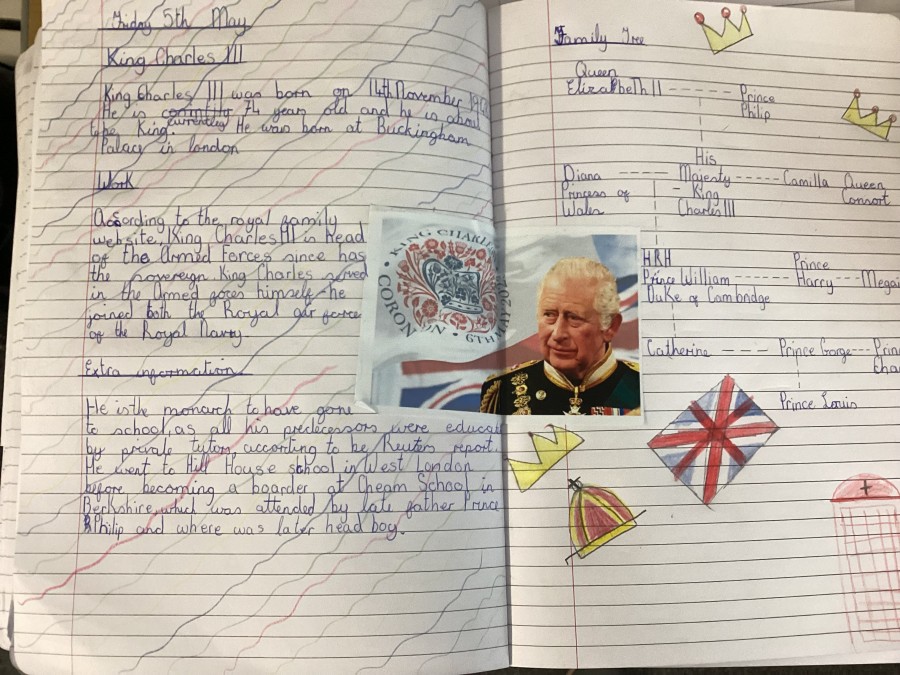 Friday 5th May
King Charles III
King Charles III was born on 14th November 19
He is currently 74 years old and he is about
to be King. He was born at Buckingham
Palace in london
Work
According to the royal family
website, King Charles III is head
of the Armed Forces since has
the sovereign King Charles served
in the Armed himself-he
joined both the Royal air force
of the Royal Navy.
Extra information
He is the monarch to have gone
to school, as all his predecessors were educa
by private tutors, according to be Reuters report.
He went to Hill House school in West London
before becoming a boarder at Cheam School in
Berkshire, which was attended by late father Prince
Philip and where was later head boy.
KING CHARLES
CORON ON • 6TH MAY
Family Tree
Queen
Elizabeth II ----- Prince
Philip
His
Diana ---- Majesty ----- Camilla Queen
Princess of - King Consort
Wales Charles III
HRH Prince
Prince William ---- Harry --- Mega
Duke of Cambridge
Catherine --- Prince George --- Prin
Cha
Prince Louis